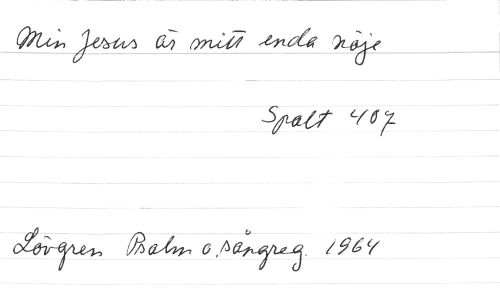 Min Jesus är mitt enda nöje
Spalt 407
Lövgren Psalm o. sångreg. 1964